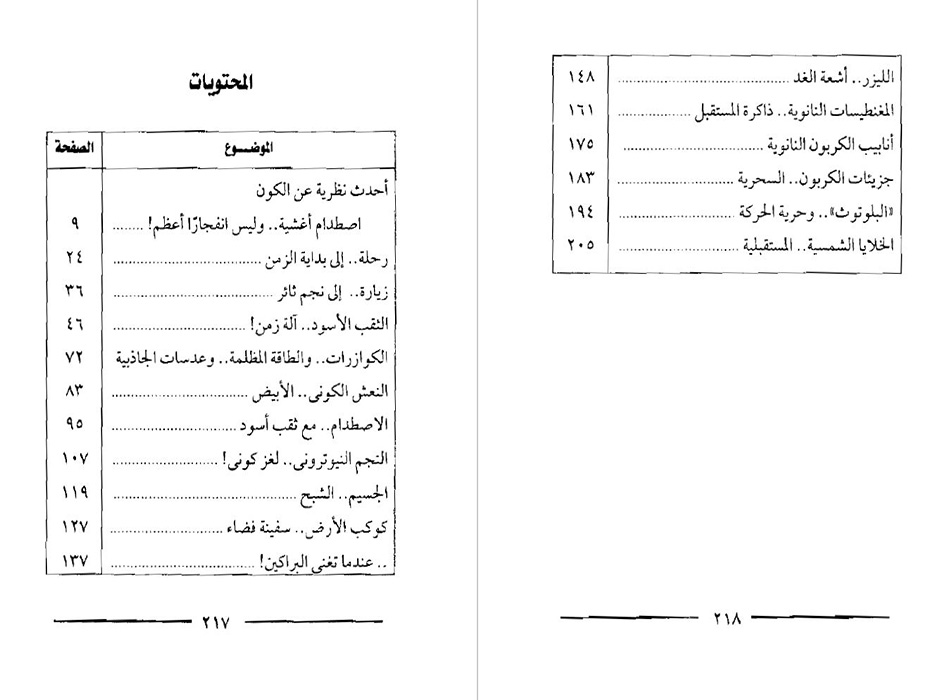 المحتويات
الموضـــوع الصفحة
أحدث نظرية عن الكون
اصطدام أغشية.. وليس انفجارًا أعظم! ........ ٩
رحلة.. إلى بداية الزمن ........ ٢٤
زيارة.. إلى نجم ثائر ........ ٣٦
الثقب الأسود.. آلة زمن! ........ ٤٦
الكوازرات.. والطاقة المظلمة.. وعدسات الجاذبية ٧٢
النعش الكونى.. الأبيض ........ ٨٣
الاصطدام.. مع ثقب أسود ........ ٩٥
النجم النيوترونى.. لغز كونى! ........ ١٠٧
الجسيم.. الشبح ........ ١١٩
كوكب الأرض.. سفينة فضاء ........ ١٢٧
.. عندما تغنى البراكين! ........ ١٣٧
٢١٧
الليزر.. أشعة الغد ........ ١٤٨
المغنطيسات النانوية.. ذاكرة المستقبل ........ ١٦١
أنابيب الكربون النانوية ........ ١٧٥
جزيئات الكربون.. السحرية ........ ١٨٣
«البلوتوث».. وحرية الحركة ........ ١٩٤
الخلايا الشمسية.. المستقبلية ........ ٢٠٥
٢١٨